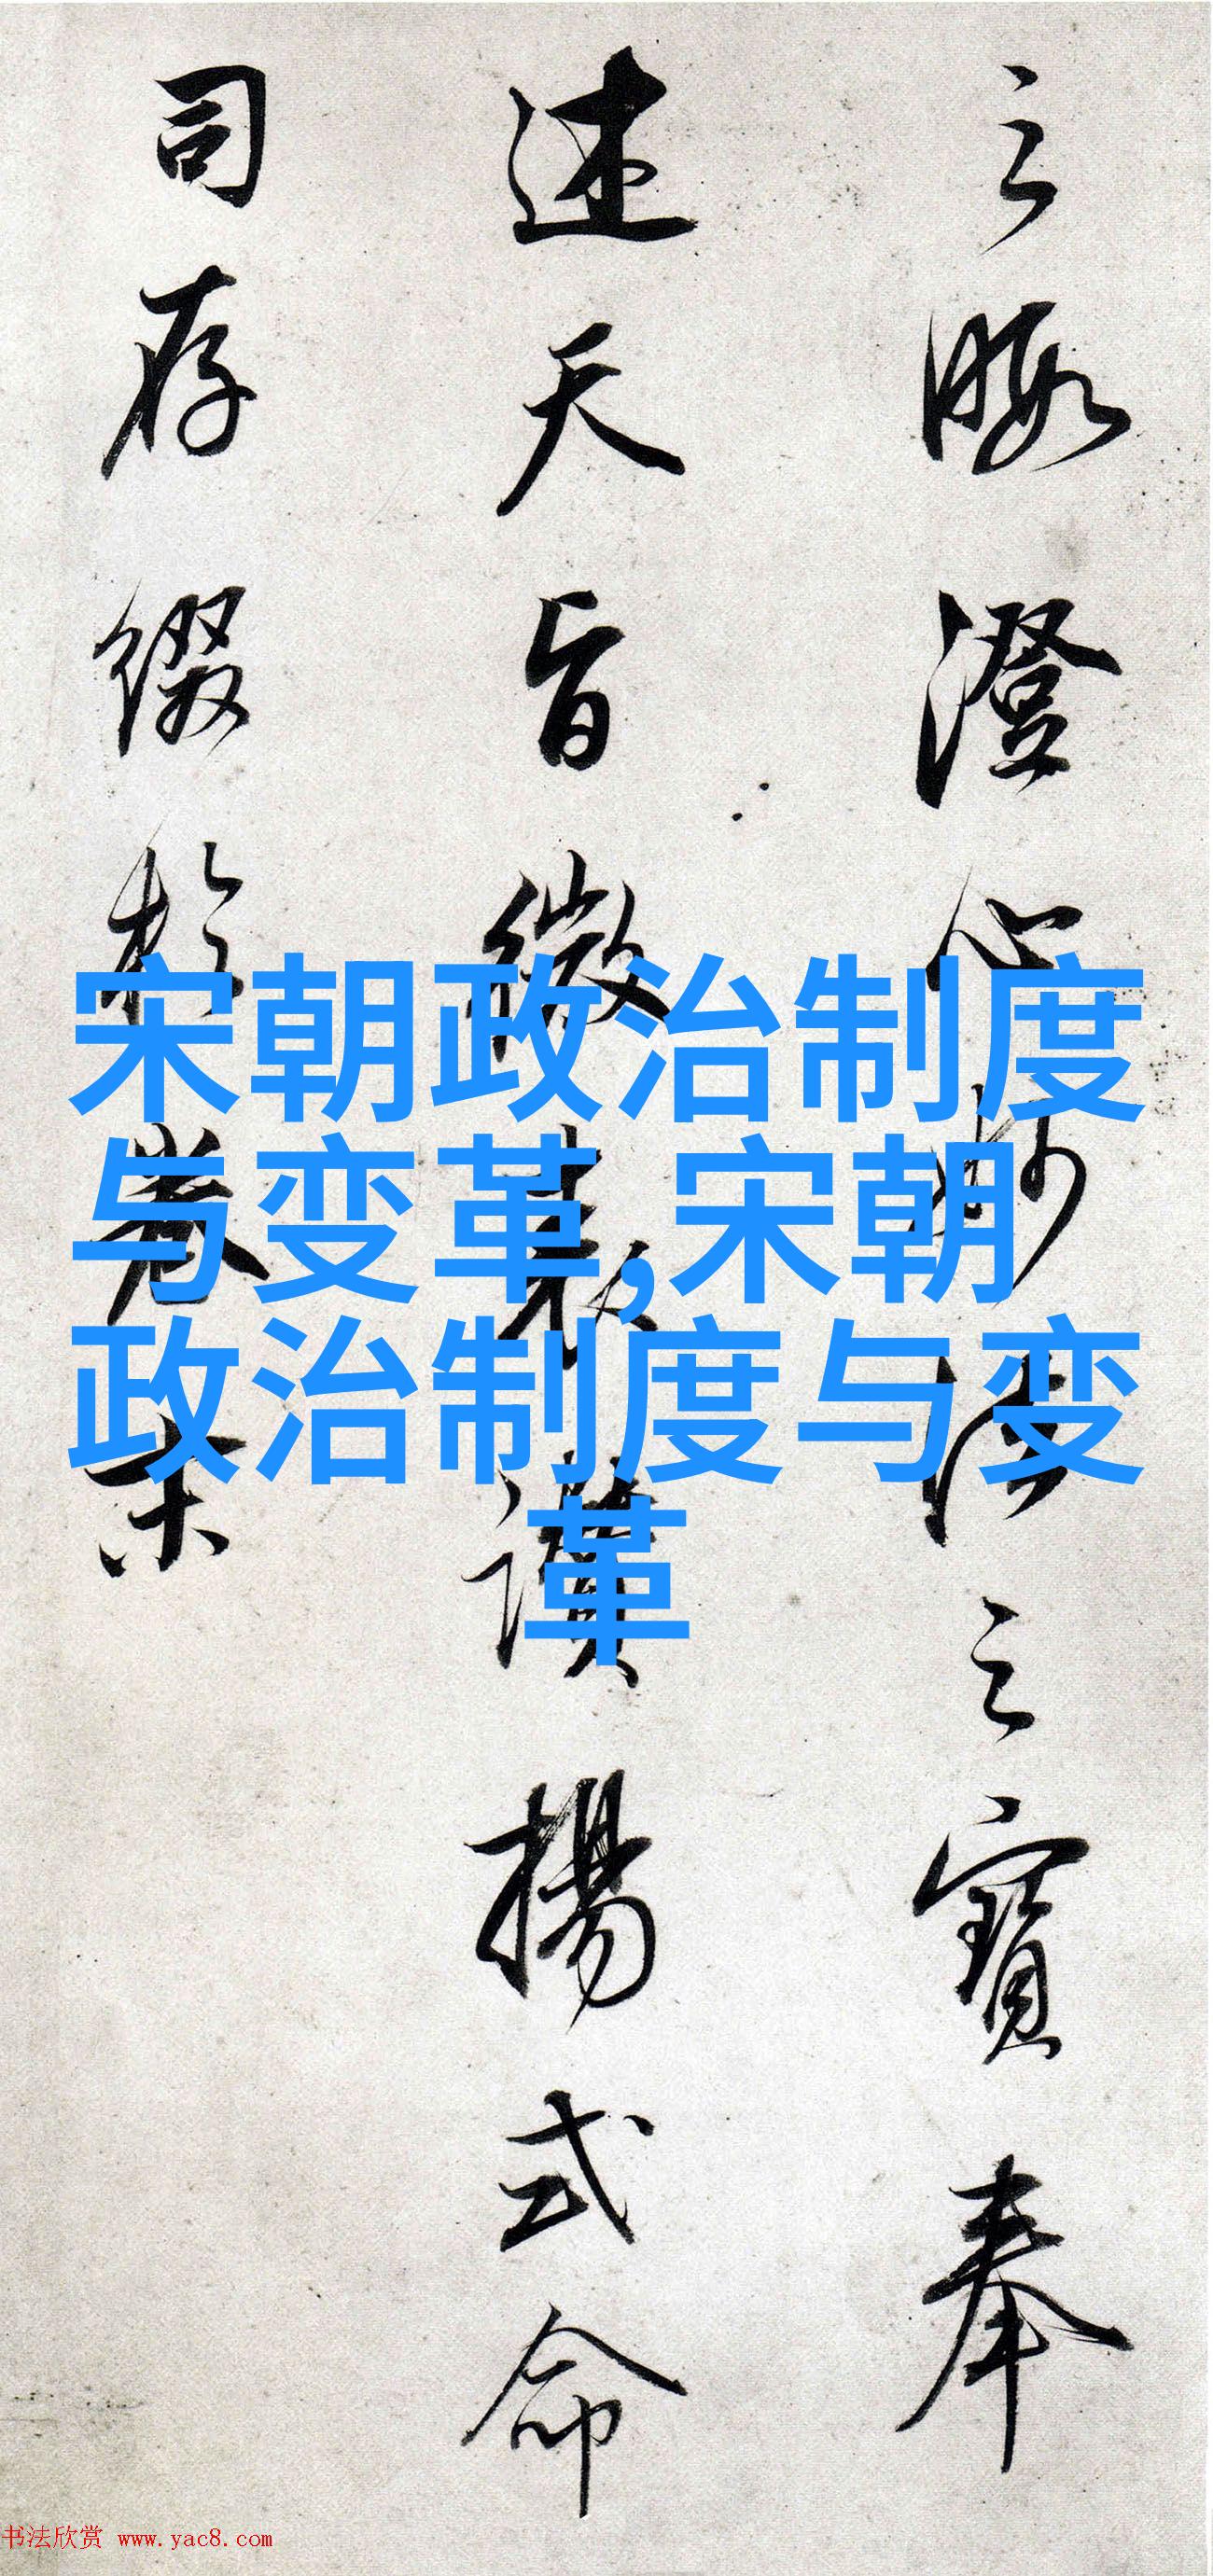 之暇澄心妙法之寶奉
述天旨微表讚揚式命
司存綴於卷末
宋朝政治制度
与变革,宋朝
政治制度与变
革
书法欣赏 www.yac8.com